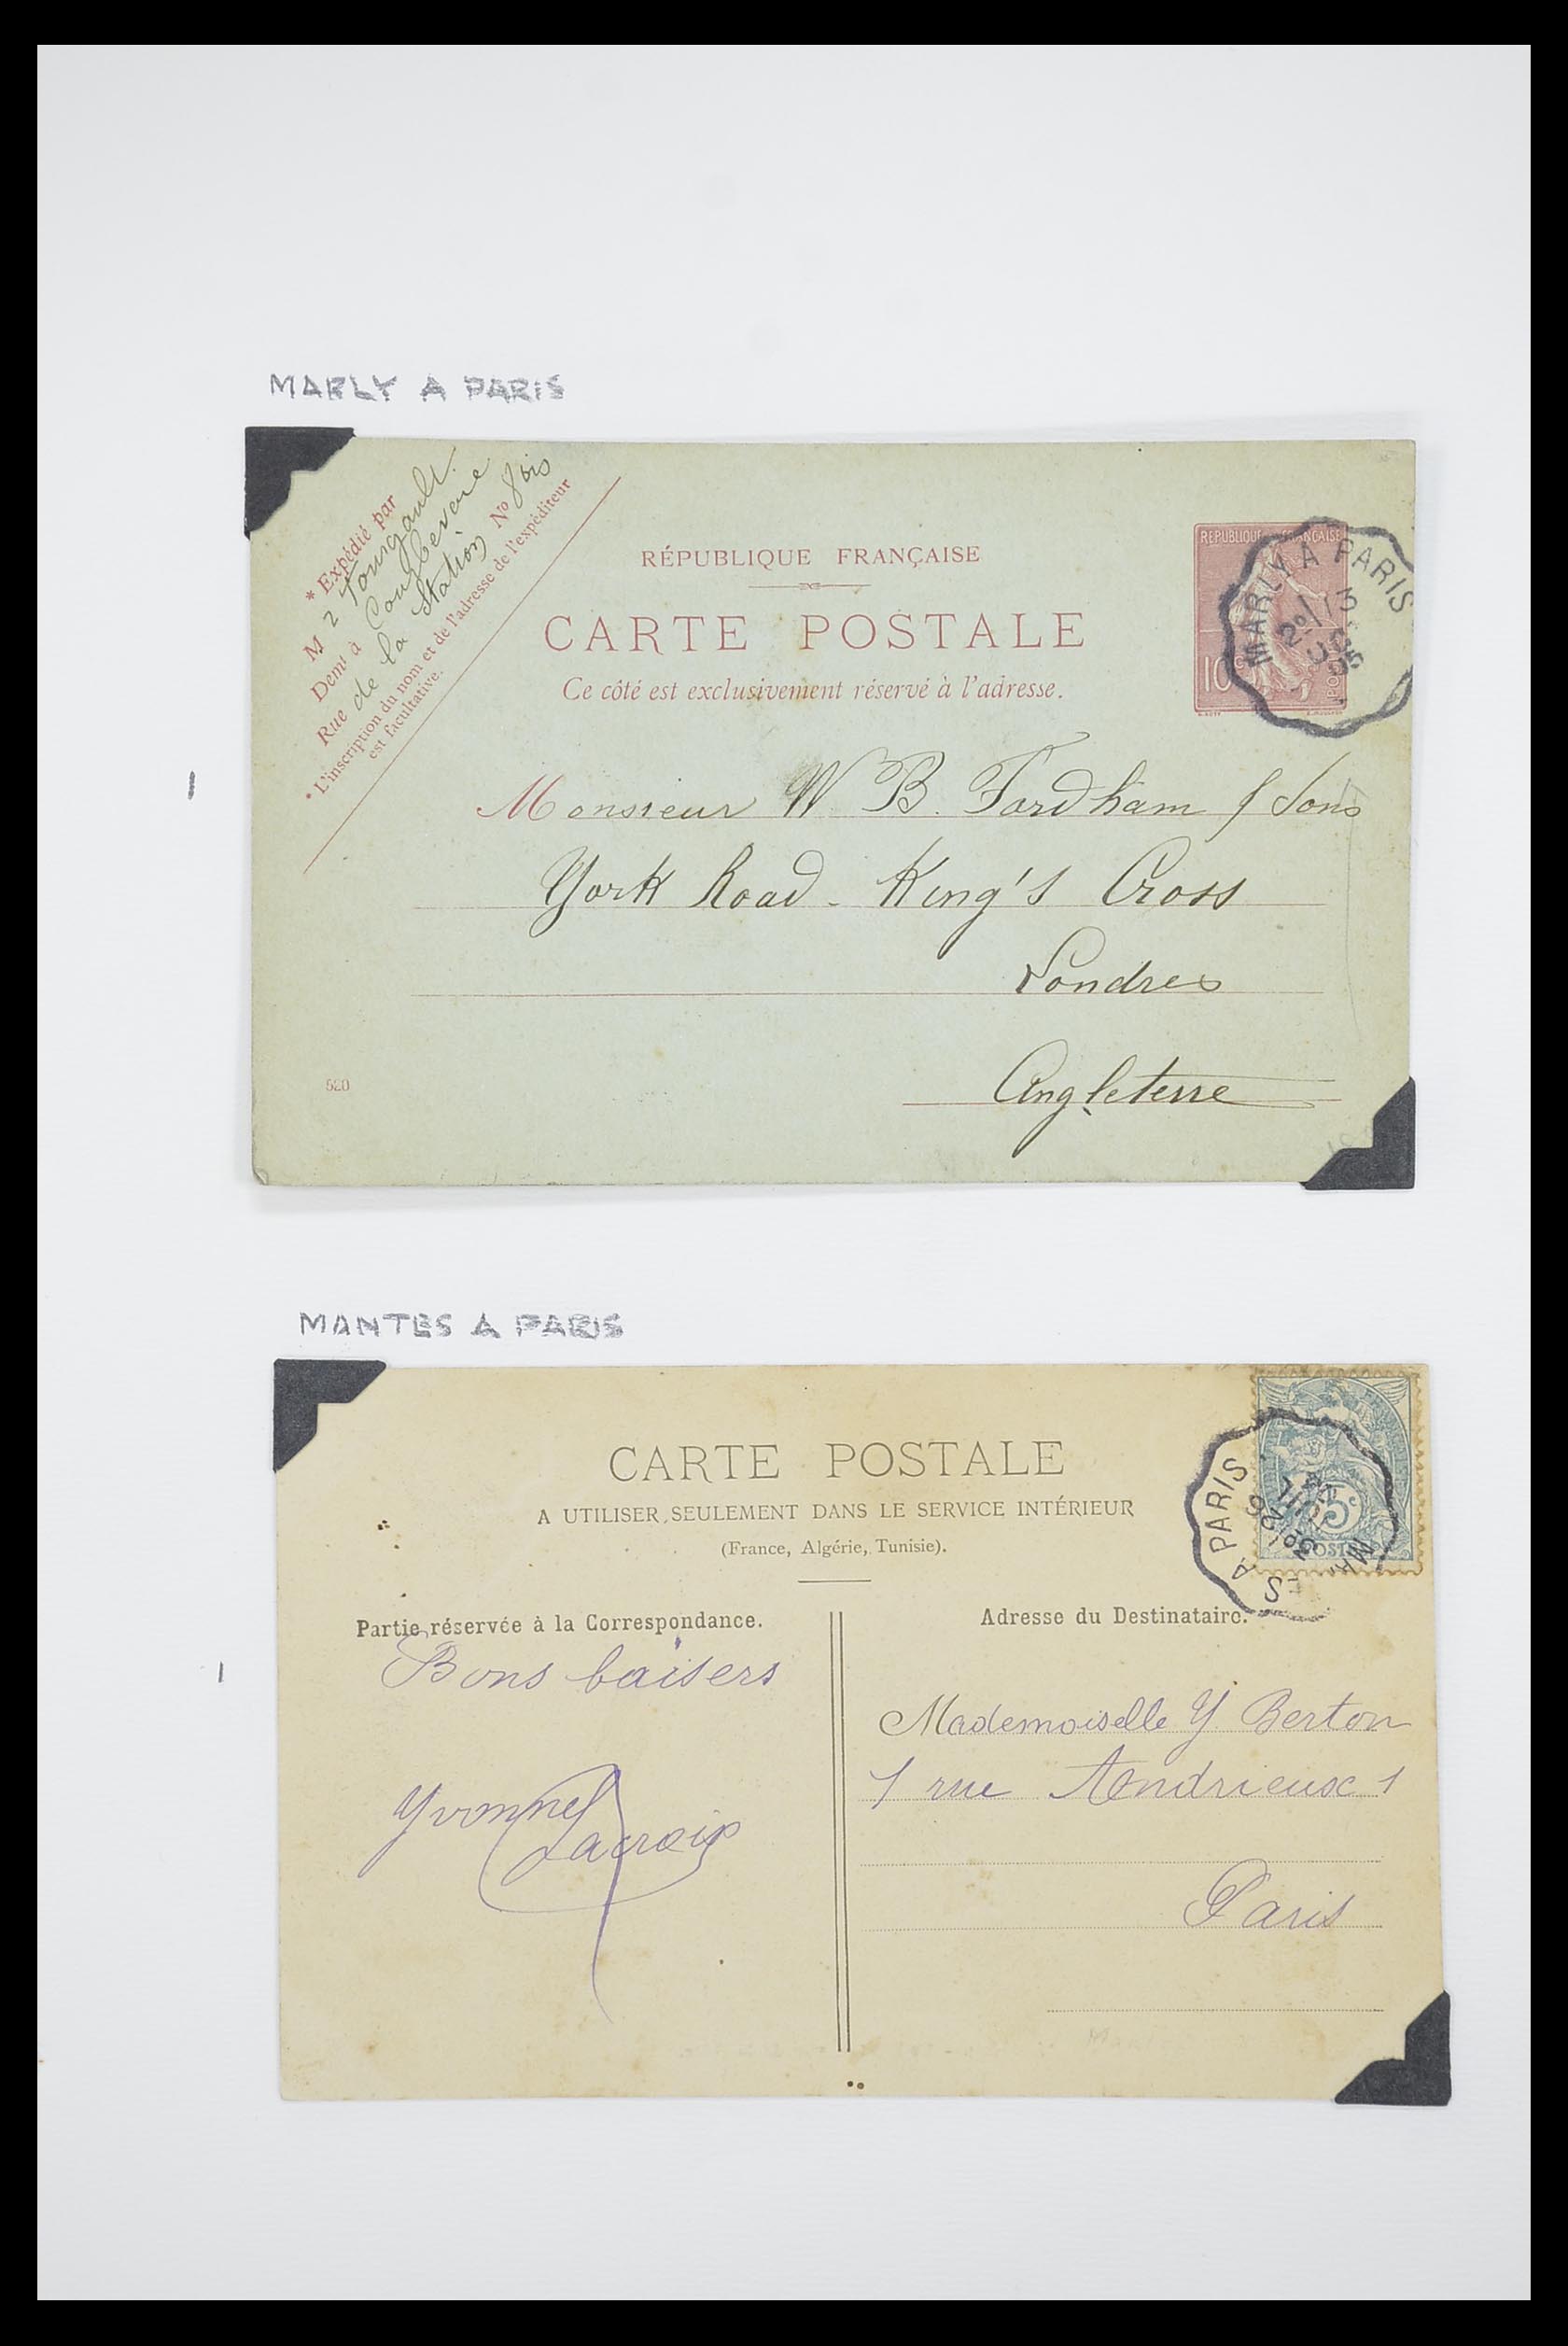 MARLY A PARIS
* Expédié par
M
Demt à Courbevoie
Rue de la Station No 8 bis
* L'inscription du nom et de l'adresse de l'expéditeur
est facultative.
RÉPUBLIQUE FRANÇAISE
CARTE POSTALE
Ce côté est exclusivement réservé à l'adresse.
REPUBLIQUE FRANÇAISE
10c
MARLY A PARIS
2º/13
05
Monsieur W. B. Fordham & Sons
York Road - King's Cross
Londres
Angleterre
520
1
MANTES A PARIS
CARTE POSTALE
A UTILISER SEULEMENT DANS LE SERVICE INTÉRIEUR
(France, Algérie, Tunisie).
5c
POSTES
A PARIS
Partie réservée à la Correspondance.
Adresse du Destinataire.
Bons baisers
Yvonne
Lacroix
Mademoiselle Y. Berton
1 rue Andrieux 1
Paris
1